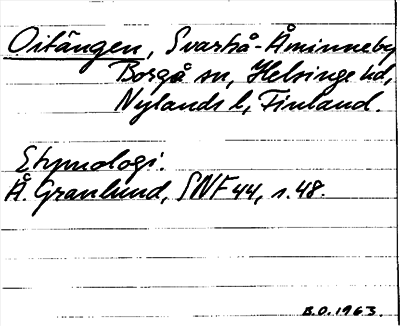 Oitängen, Svartså-Åminneby
Borgå sn, Helsinge hd,
Nylands l, Finland.
Etymologi.
Å. Granlund, SNF 44, s. 48.
B.O. 1963.